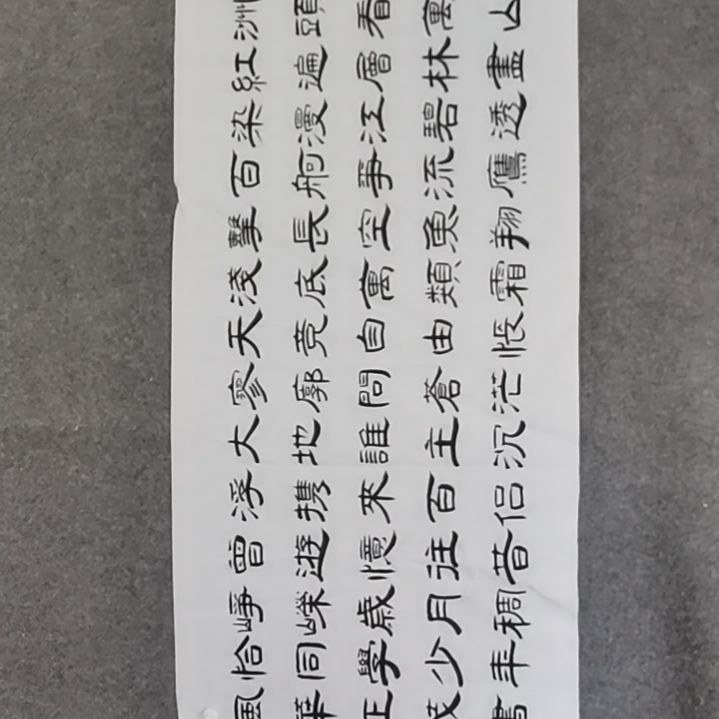 洲頭看萬山
紅遍層林盡
染漫江碧透
百舸爭流鷹
擊長空魚翔
淺底萬類霜
天竟自由悵
寥廓問蒼茫
大地誰主沉
浮携來百侣
曾遊憶往昔
崢嶸歲月稠
恰同學少年
風華正茂書